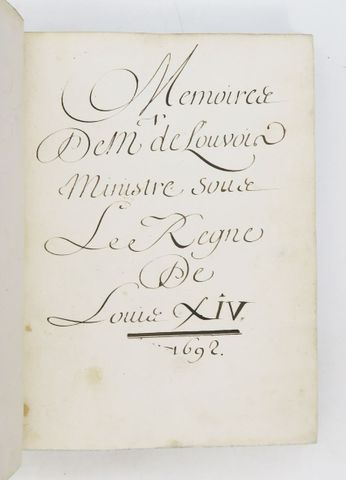 Memoires
De Mr de Louvois
Ministre sous
Le Regne
De
Louis XIV.
1692.